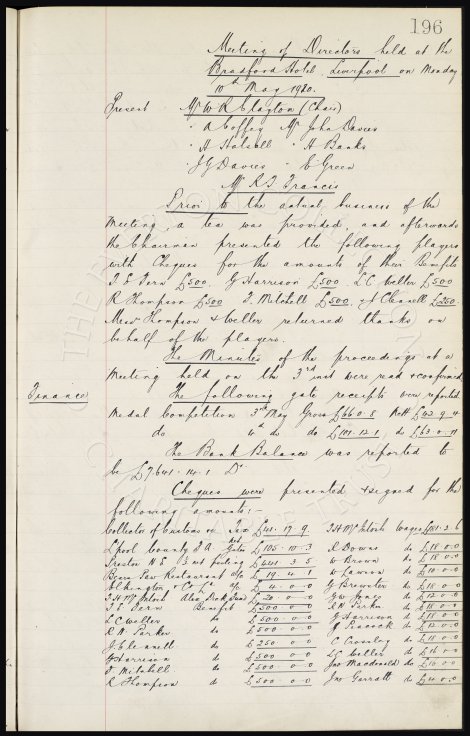 196
Meeting of Directors held at the
Bradford Hotel, Liverpool on Monday
10th May 1920.
Present Mr W R Clayton (Chair)
" A Coffey Mr John Davies
" H Halsall " H Banks
" J G Davies " E Green
Mr R J Francis
Prior to the actual business of the
Meeting, a tea was provided, and afterwards
the Chairman presented the following players
with Cheques for the amounts of their Benefits
T E Fern £500. G Harrison £500. L C Weller £500
R Thompson £500 F. Mitchell £500. J Clennell £250.
Messrs Thompson & Weller returned thanks on
behalf of the players.
The Minutes of the proceedings at a
Meeting held on the 3rd inst were read & confirmed
Finance The following gate receipts were reported
Medal Competition 3rd May Gross £66.0.8 Nett £42.9.4
do 4th do do £101.12.1 do £63.0.11
The Bank Balance was reported to
be £7641.14.1 Dr
Cheques were presented & signed for the
following amounts:
Collector of Customs Tax £41.17.9 T H McIntosh wages
L'pool County F A Gates £105.10.3 D Downs do £18.0.0
Preston N E £441.3.5 W Brown do £18.0.0
Bear's Paw Restaurant a/c £19.4.6 do £10.0.0
Elkington & Co £4.0.0 G Brewster do £18.0.0
T H McIntosh £20.0.0 G W Jones do £12.0.0
T E Fern Benefit £500.0.0 R N Parker do £18.0.0
L C Weller do £500.0.0 G Harrison do £18.0.0
R N Parker do £500.0.0 J Peacock do £12.0.0
J Clennell do £250.0.0 C Crossley do £18.0.0
G Harrison do £500.0.0 L C Weller do £16.0.0
F Mitchell do £500.0.0 Jno Macdonald do £16.0.0
R Thompson do £500.0.0 Jno Garratt do £4.0.0